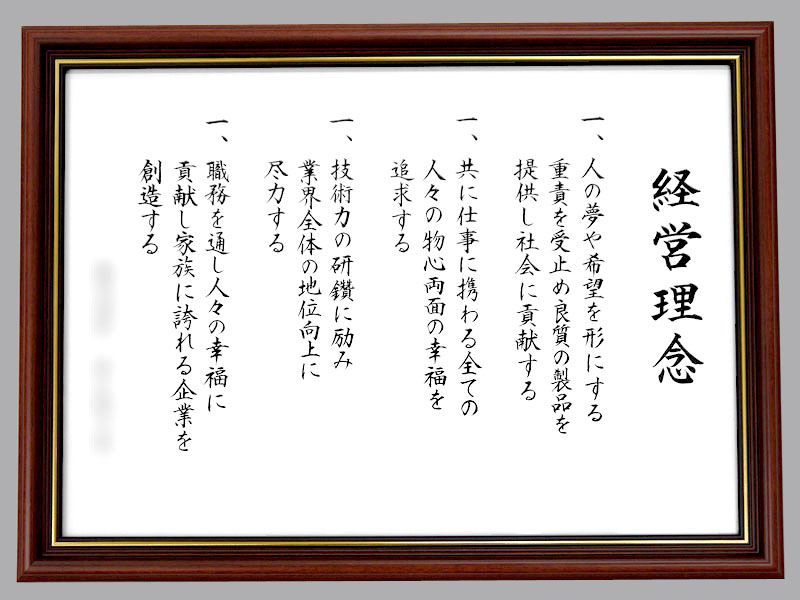 経営理念
一、人の夢や希望を形にする
重責を受止め良質の製品を
提供し社会に貢献する
一、共に仕事に携わる全ての
人々の物心両面の幸福を
追求する
一、技術力の研鑽に励み
業界全体の地位向上に
尽力する
一、職務を通し人々の幸福に
貢献し家族に誇れる企業を
創造する